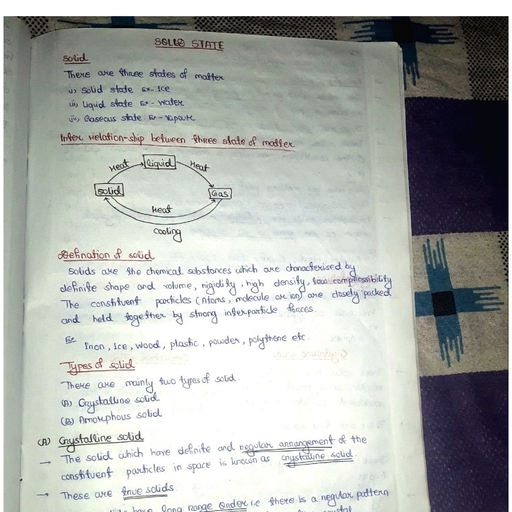 SOLID STATE
Solid
There are three states of matter
(i) Solid state Ex- Ice
(ii) Liquid state Ex- Water
(iii) Gaseous state Ex- Vapour
Inter relation-ship between three state of matter
Heat
Liquid
Heat
Solid
Gas
Heat
cooling
Defination of solid
Solids are the chemical substances which are characterised by
definite shape and volume, rigidity, high density, low compressibility
The constituent particles (Atoms, molecule or ion) are closely packed
and held together by strong interparticle forces.
Ex
Iron, Ice, wood, plastic, powder, polythene etc.
Types of solid
There are mainly two types of solid.
(A) Crystalline solid
(B) Amorphous solid
(A) Crystalline solid
— The solid which have definite and regular arrangement of the
constituent particles in space is known as crystalline solid.
→ These are true solids
have long range order i.e there is a regular pattern